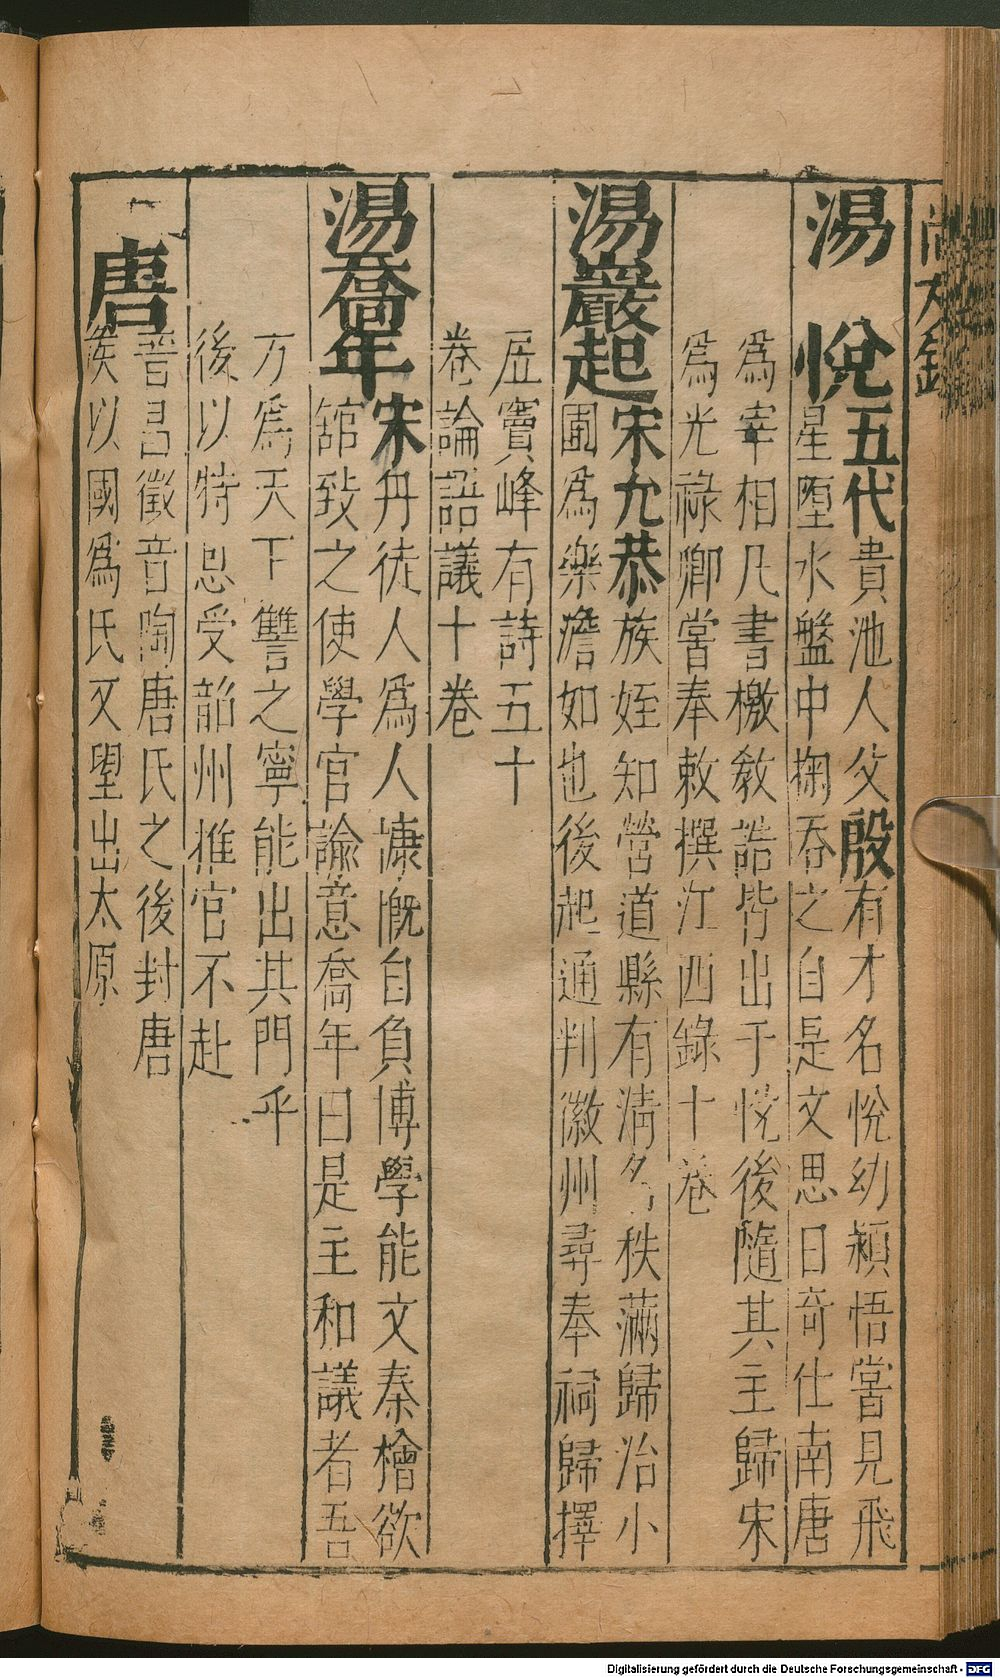 湯悅五代貴池人父殷有才名悅幼穎悟嘗見飛
星墮水盤中掬吞之自是文思日奇仕南唐
為宰相凡書檄敎誥皆出于悅後隨其主歸宋
為光祿卿嘗奉敕撰江西錄十卷
湯巖起宋允恭族姪知營道縣有清名秩滿歸治小
圃為樂澹如也後起通判徽州尋奉祠歸擇
居竇峰有詩五十
卷論語議十卷
湯喬年宋丹徒人為人慷慨自負博學能文秦檜欲
舘致之使學官諭意喬年曰是主和議者吾
方為天下讐之寧能出其門乎
後以特恩受韶州推官不赴
唐
晉昌徵音陶唐氏之後封唐
侯以國為氏又望出太原
Digitalisierung gefördert durch die Deutsche Forschungsgemeinschaft - DFG